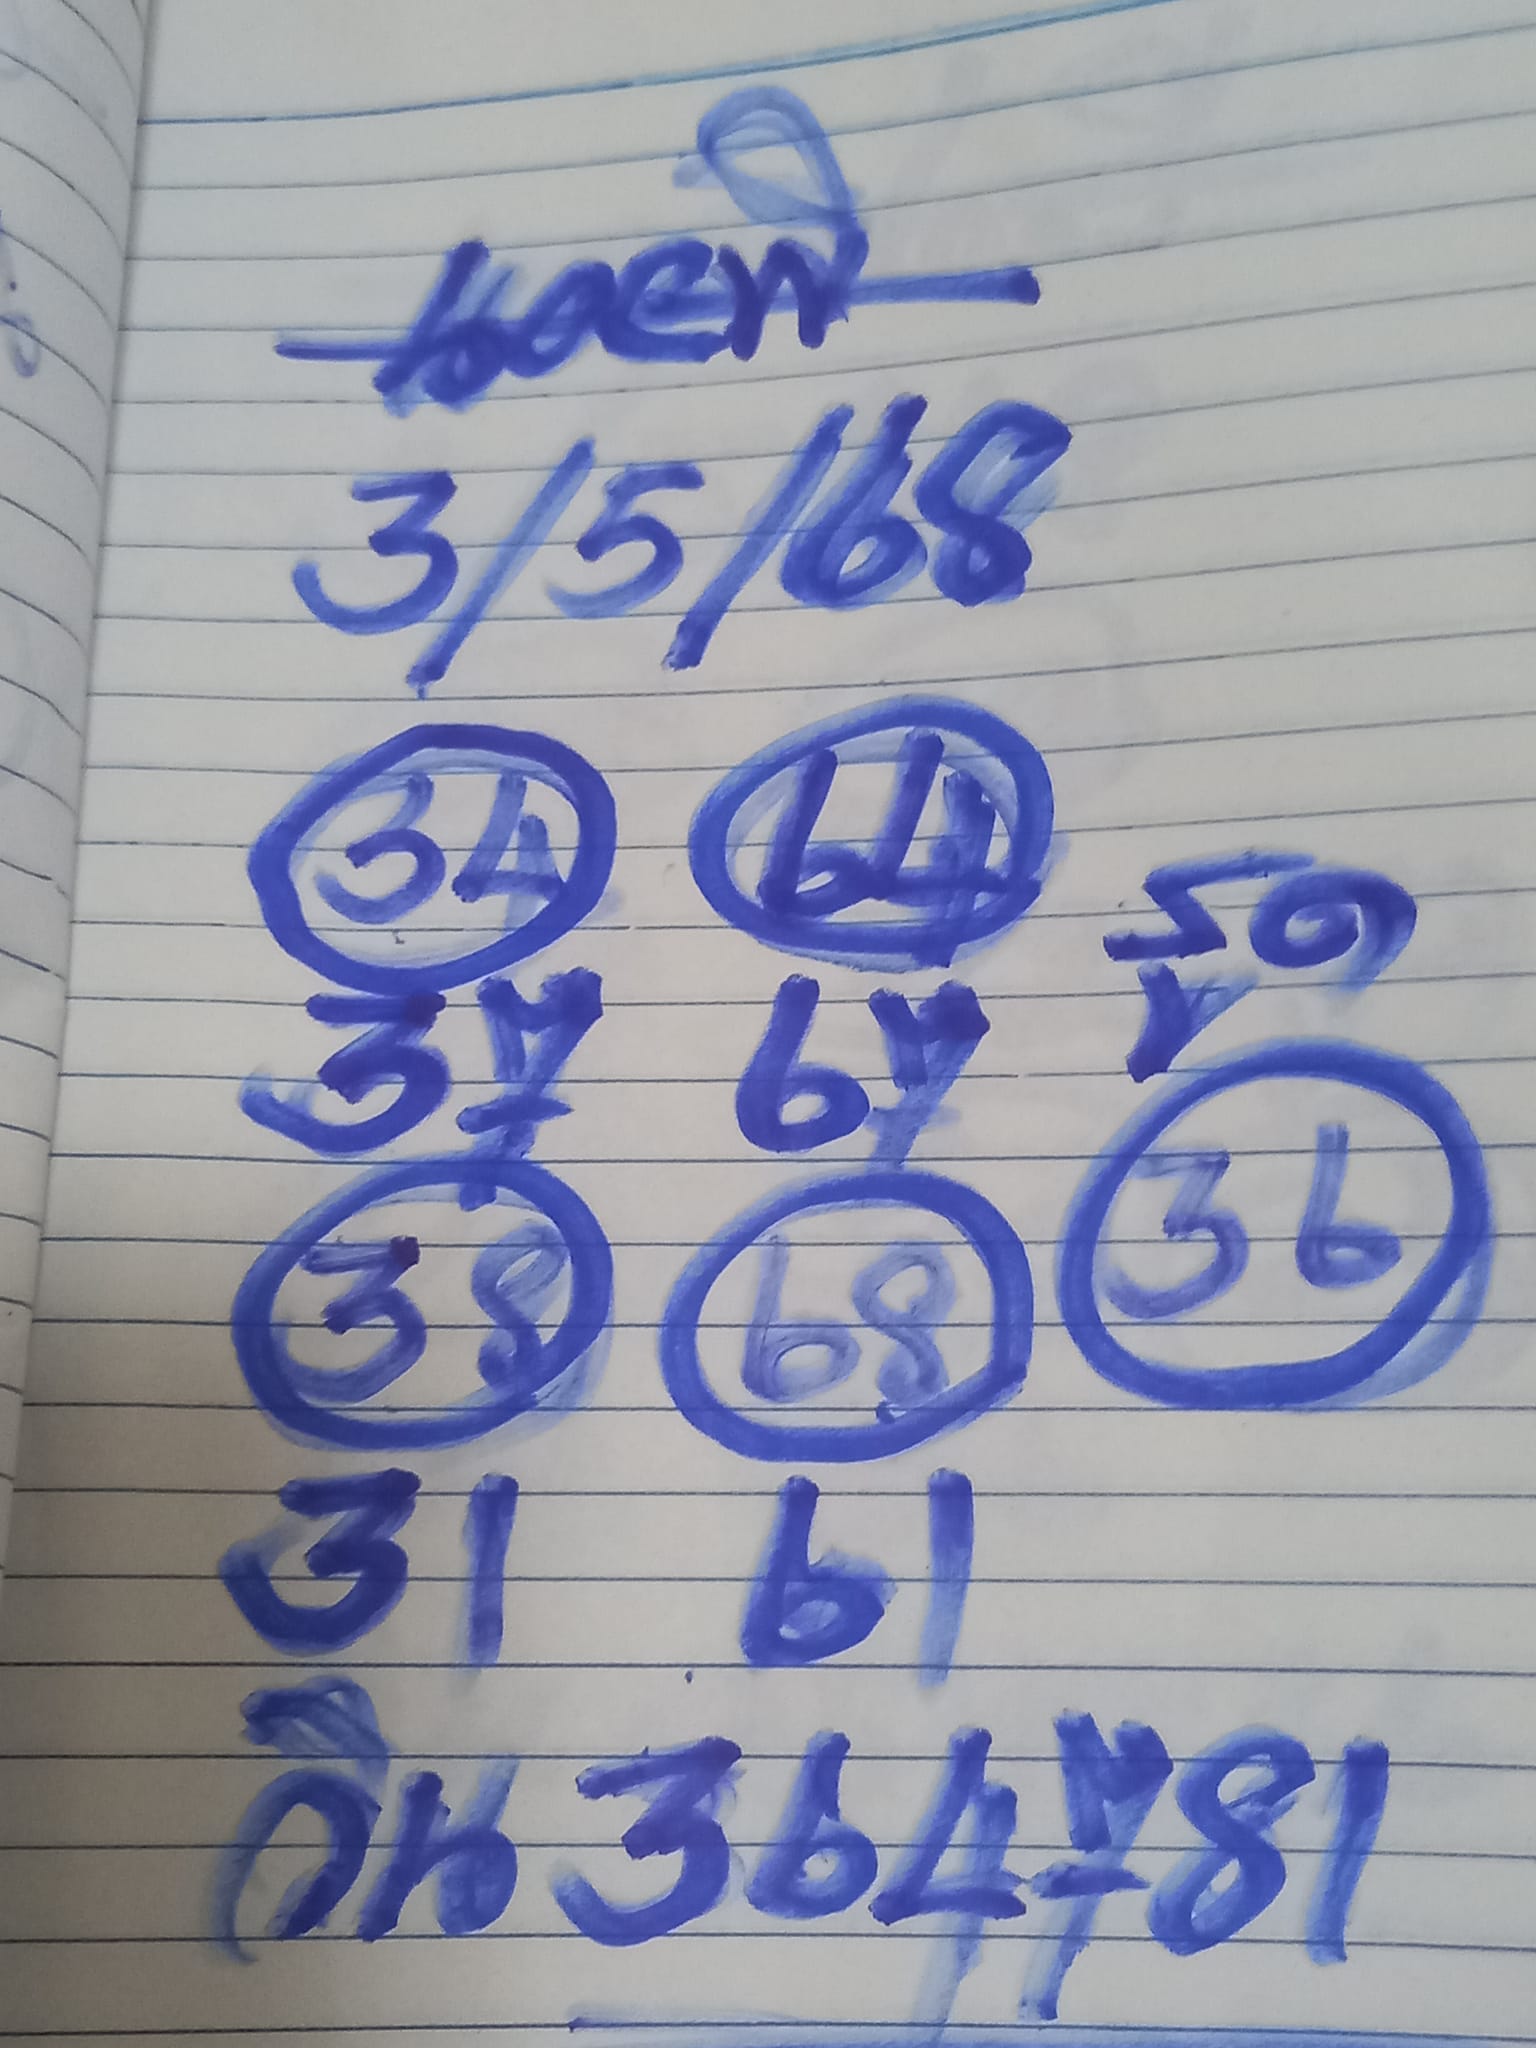 3/5/68
34 64
37 67 รูด
38 68 36
31 61
วิน 364781